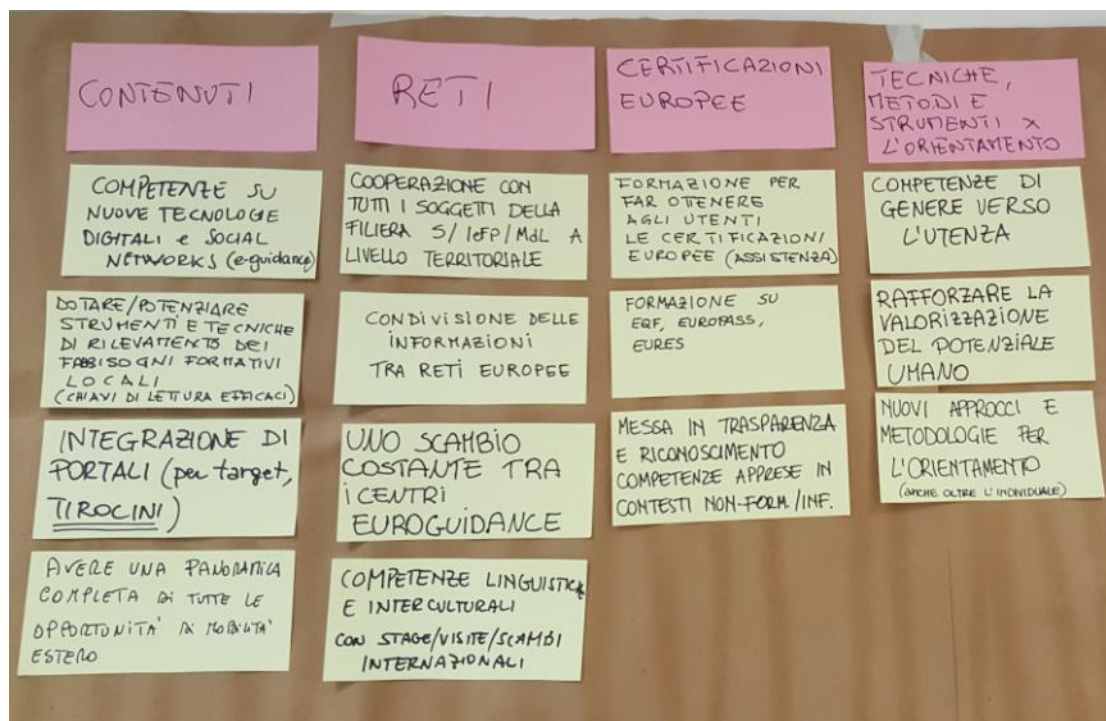 CONTENUTI
COMPETENZE SU
NUOVE TECNOLOGIE
DIGITALI e SOCIAL
NETWORKS (e-guidance)
DOTARE/POTENZIARE
STRUMENTI E TECNICHE
DI RILEVAMENTO DEI
FABBISOGNI FORMATIVI
LOCALI
(CHIAVI DI LETTURA EFFICACI)
INTEGRAZIONE DI
PORTALI (per target,
TIROCINI)
AVERE UNA PANORAMICA
COMPLETA DI TUTTE LE
OPPORTUNITA' DI MOBILITA'
ESTERO
RETI
COOPERAZIONE CON
TUTTI I SOGGETTI DELLA
FILIERA S/IeFP/MdL A
LIVELLO TERRITORIALE
CONDIVISIONE DELLE
INFORMAZIONI
TRA RETI EUROPEE
UNO SCAMBIO
COSTANTE TRA
i CENTRI
EUROGUIDANCE
COMPETENZE LINGUISTICHE
E INTERCULTURALI
CON STAGE/VISITE/SCAMBI
INTERNAZIONALI
CERTIFICAZIONI
EUROPEE
FORMAZIONE PER
FAR OTTENERE
AGLI UTENTI
LE CERTIFICAZIONI
EUROPEE (ASSISTENZA)
FORMAZIONE SU
EQF, EUROPASS,
EURES
MESSA IN TRASPARENZA
E RICONOSCIMENTO
COMPETENZE APPRESE IN
CONTESTI NON-FORM./INF.
TECNICHE,
METODI E
STRUMENTI X
L'ORIENTAMENTO
COMPETENZE DI
GENERE VERSO
L'UTENZA
RAFFORZARE LA
VALORIZZAZIONE
DEL POTENZIALE
UMANO
NUOVI APPROCCI E
METODOLOGIE PER
L'ORIENTAMENTO
(ANCHE OLTRE L'INDIVIDUALE)